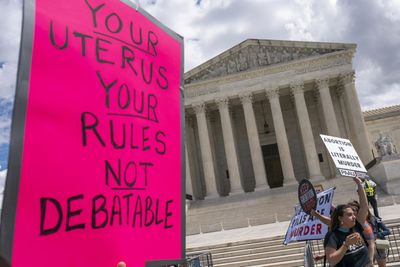 YOUR
UTERUS
YOUR
RULES
NOT
DEBATABLE
ABORTION
IS
LITERALLY
MURDER
MURDER